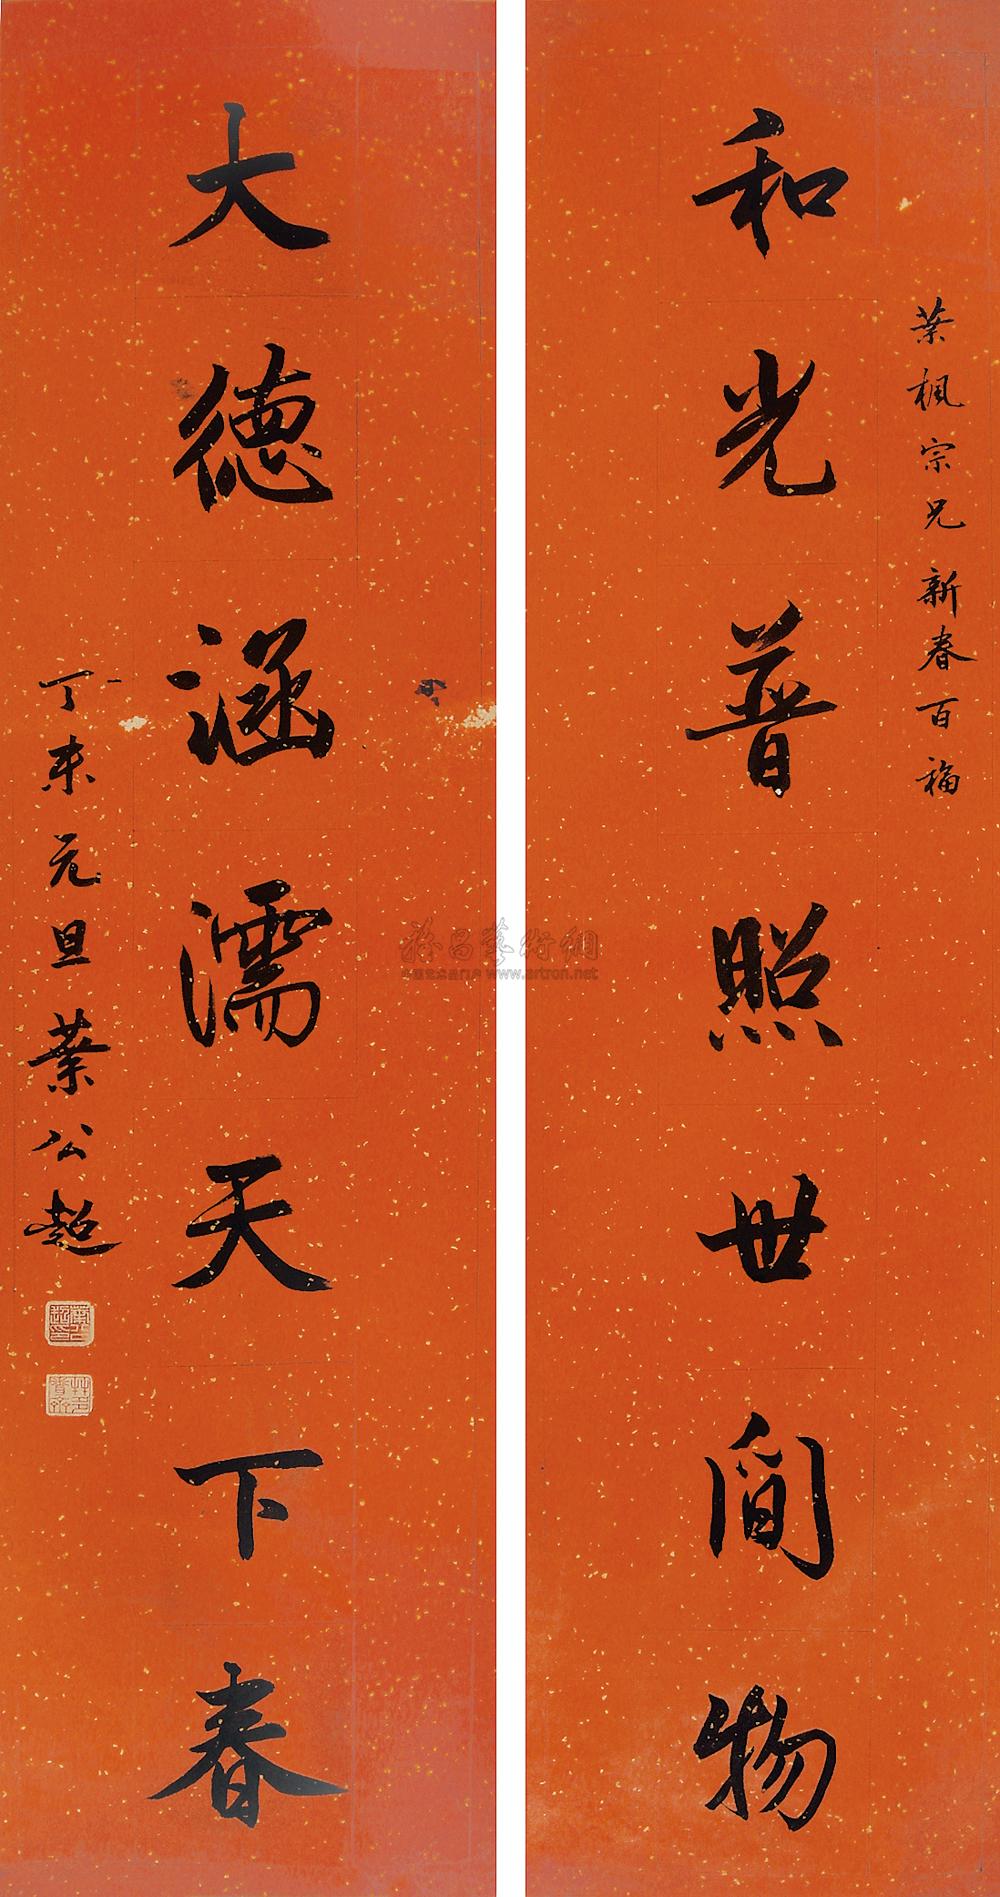 葉楓宗兄新春百福
和光普照世间物
大德涵濡天下春
丁未元旦葉公超
葉公超印
www.artron.net